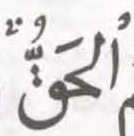 اُلحَقُّ